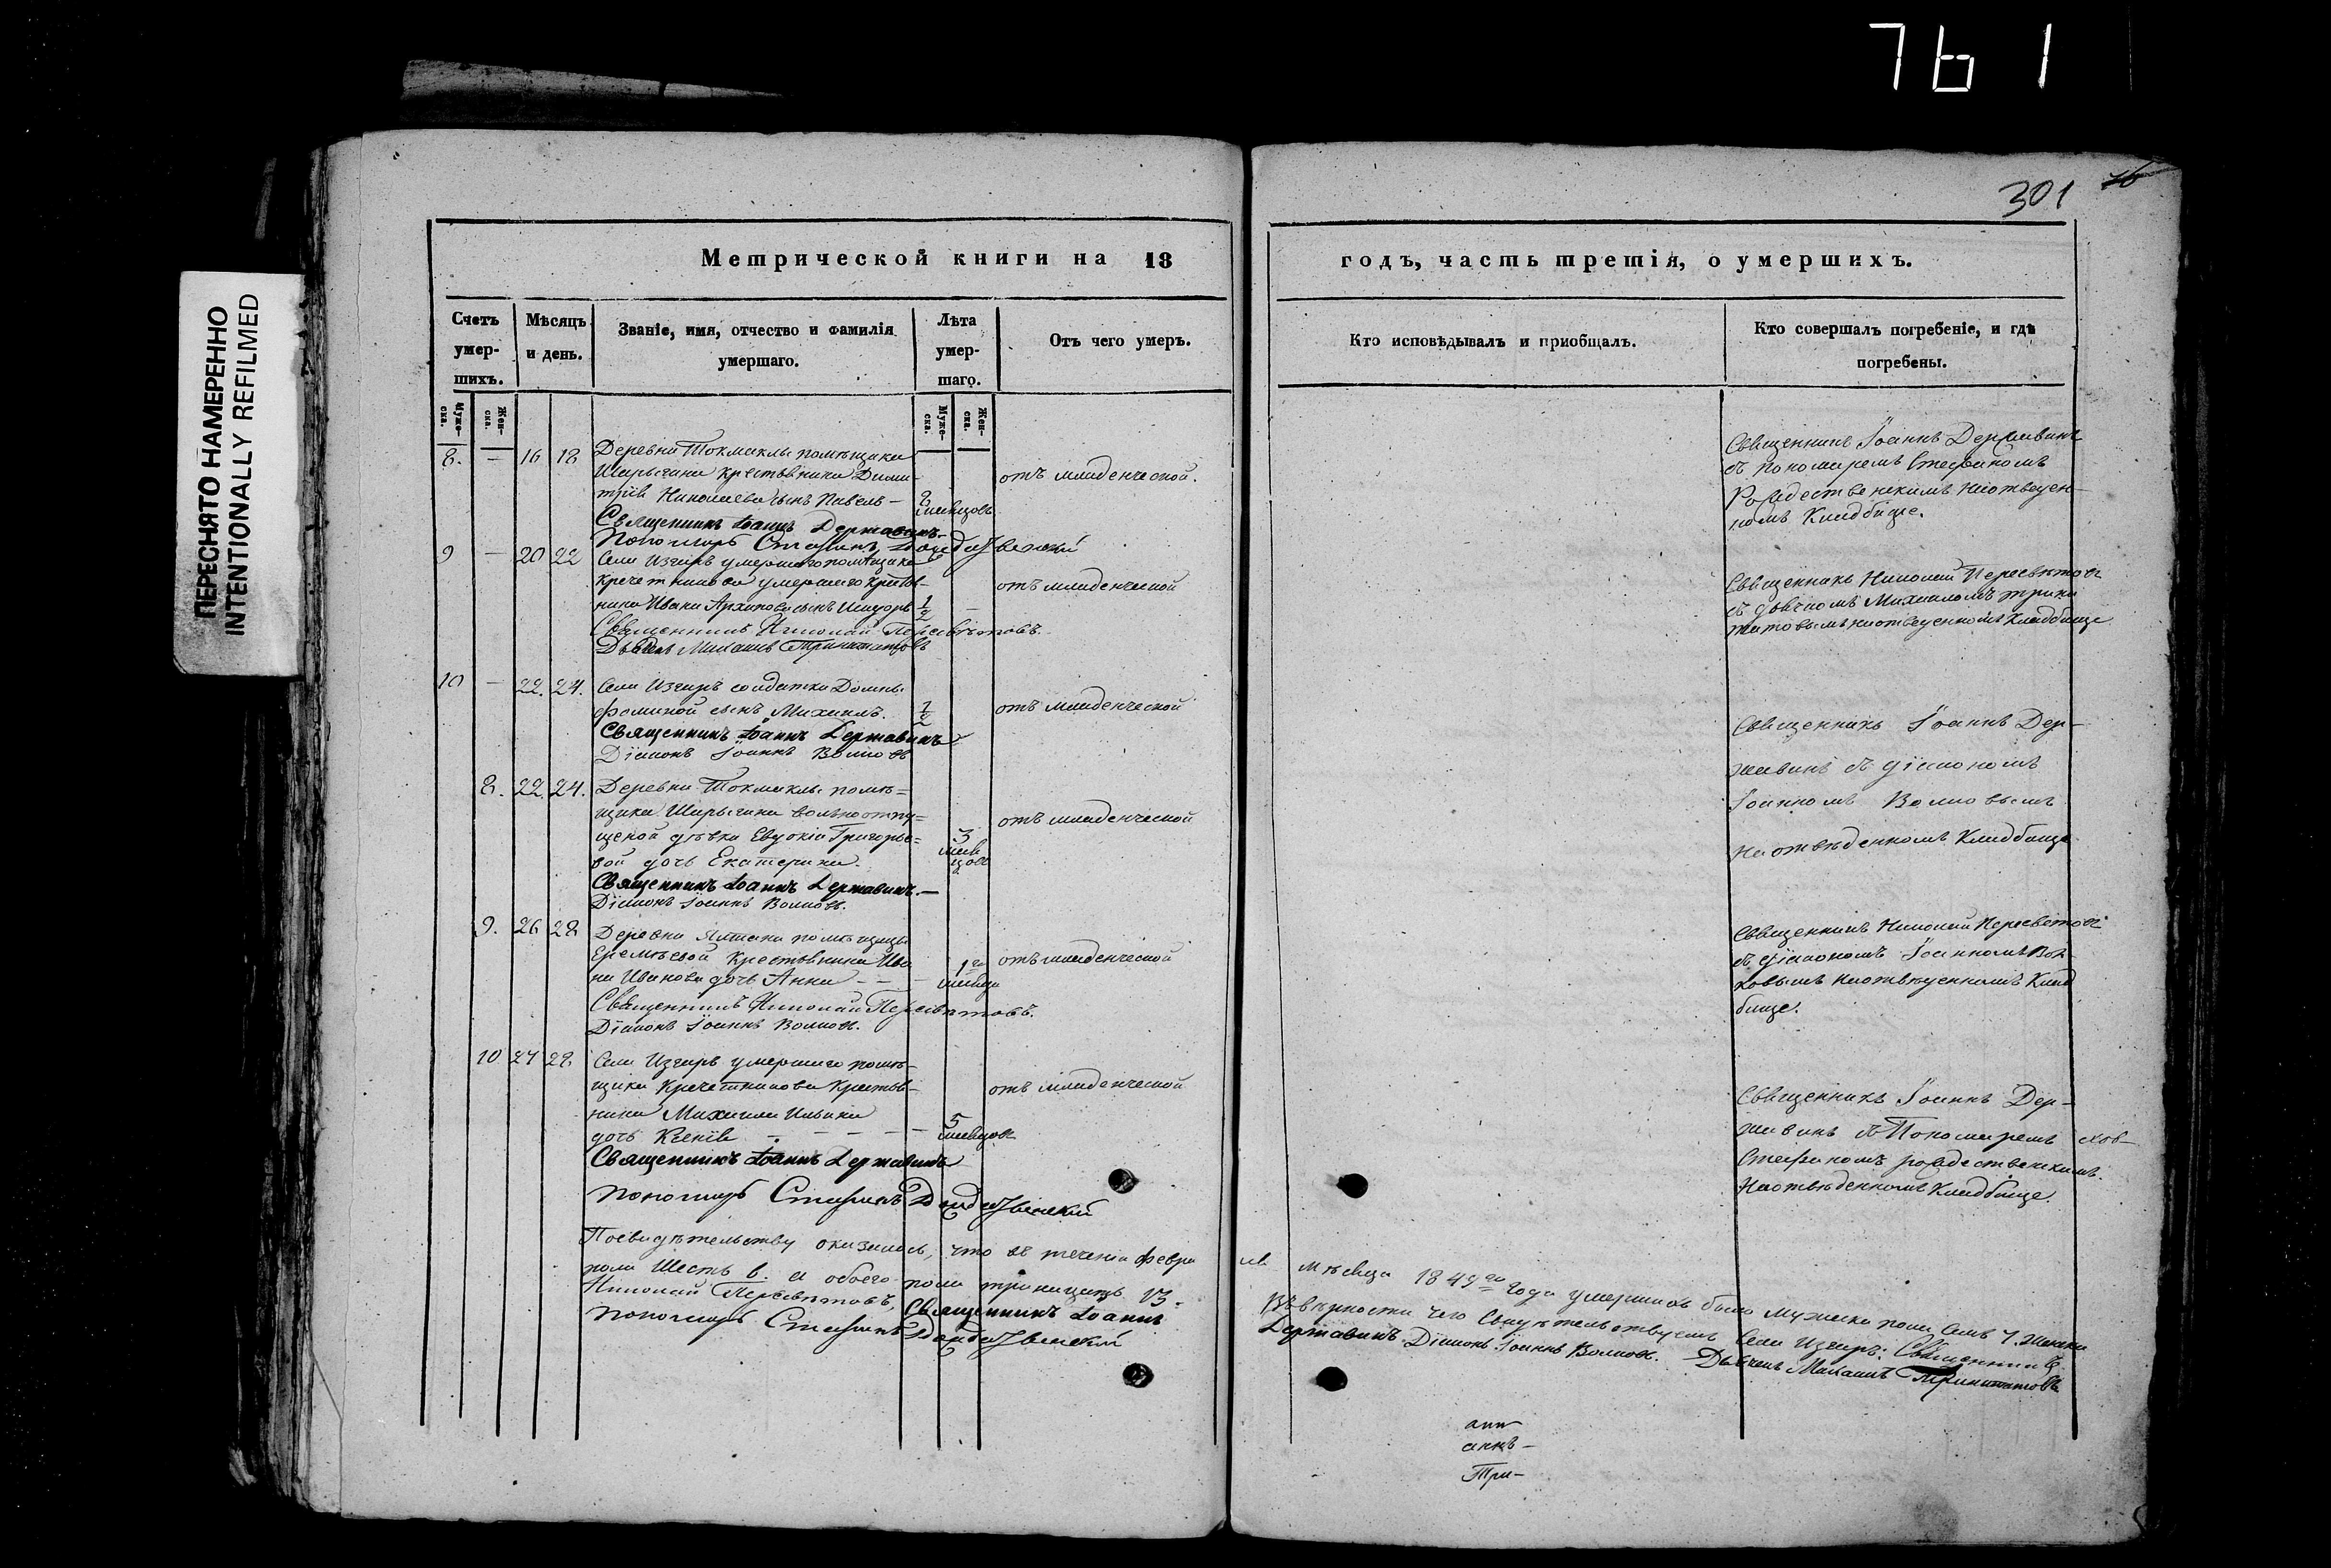 761
301
76
ПЕРЕСНЯТО НАМЕРЕННО
INTENTIONALLY REFILMED
Метрической книги на 18
годъ, часть третія, о умершихъ.
Счетъ умер-шихъ.
Мѣсяцъ и день.
Званіе, имя, отчество и фамилія умершаго.
Лѣта умер-шаго.
Отъ чего умеръ.
Кто исповѣдывалъ и пріобщалъ.
Кто совершалъ погребеніе, и гдѣ погребены.
Муже-ска.
Жен-ска.
Муже-ска.
Жен-ска.
8. — 16 18 Деревни Токмаклы помѣщика
Шарыгина крестьянина Дими-
трія Николаева сынъ Павелъ —
8 мѣсяцовъ
отъ младенческой.
Священникъ Іоаннъ Державинъ.
Пономарь Стефанъ Рождественскій
Священникъ Іоаннъ Державинъ
съ пономаремъ Стефаномъ
Рождественскимъ на отведен-
номъ кладбище.
9 — 20 22 Села Изгаръ умершаго помѣщика
Кречетникова умершаго крестья-
нина Ивана Архипова сынъ Исидоръ
1/2 —
отъ младенческой
Священникъ Николай Пересвѣтовъ.
Дьячекъ Михаилъ Тринитатовъ
Священникъ Николай Пересвѣтовъ
съ дьячкомъ Михаиломъ Трини-
татовымъ на отведенномъ кладбище
10 — 22. 24. Села Изгаръ солдатки Домны
Фоминой сынъ Михаилъ.
1/2
отъ младенческой
Священникъ Іоаннъ Державинъ
Діаконъ Іоаннъ Волковъ
Священникъ Іоаннъ Дер-
жавинъ съ діакономъ
Іоанномъ Волковымъ
на отвѣденномъ кладбище
8. 22. 24. Деревни Токмаклы помѣ=
щика Шарыгина вольноотпу=
щеной дѣвки Евдокіи Григорье=
вой дочь Екатерина.
3 мѣсяцовъ
отъ младенческой
Священникъ Іоаннъ Державинъ. —
Діаконъ Іоаннъ Волковъ.
9. 26 28 Деревни помѣщицы
Еремѣевой крестьянина Ива
на Иванова дочь Анна — —
1го мѣсяца
отъ младенческой
Священникъ Николай Пересвѣтовъ.
Діаконъ Іоаннъ Волковъ.
Священникъ Николай Пересветовъ
съ діакономъ Іоанномъ Вол-
ковымъ на отведенномъ клад
бище.
10 27 28 Села Изгаръ умершаго помѣ-
щика Кречетникова крестья-
нина Михаила Ильина
дочь Ксенія — — — —
5 мѣсяцовъ
отъ младенческой
Священникъ Іоаннъ Державинъ
Пономарь Стефанъ Рождественскій
Священникъ Іоаннъ Дер-
жавинъ съ Пономаремъ
Стефаномъ рождественскимъ.
На отвѣденномъ кладбище.
По свидѣтельству оказалось, что въ теченіи февраля мѣсяца 1849го года умершихъ было мужеска пола семь 7. женска
пола шесть 6. а обоего пола тринадцать 13. Въ вѣрности чего свидѣтельствуемъ Села Изгаръ: Священникъ
Николай Пересвѣтовъ, Священникъ Іоаннъ Державинъ. Діаконъ Іоаннъ Волковъ. Дьячекъ Михаилъ Тринитатовъ
Пономарь Стефанъ Рождественскій
Три-